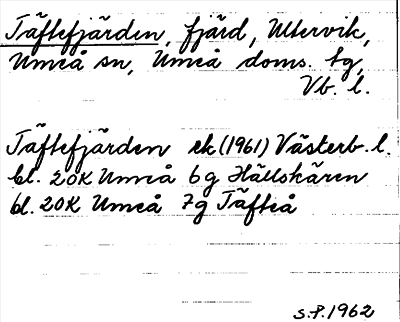 Täftefjärden, fjärd, Uttervik,
Umeå sn, Umeå doms. tg,
Vb. l.
Täftefjärden ek (1961) Västerb. l.
bl. 20K Umeå 6g Hällskären
bl. 20K Umeå 7g Täfteå
S.P. 1962